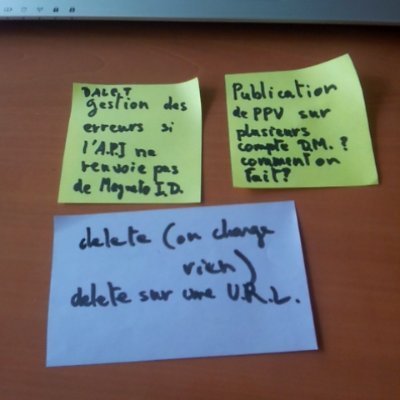 DALET
gestion des
erreurs si
l'API ne
renvoie pas
de Magneto I.D.
Publication
de PPV sur
plusieurs
compte D.M. ?
comment on
fait?
delete (on change
rien)
delete sur une U.R.L.